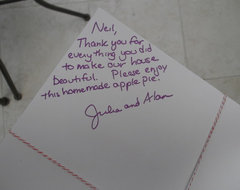 Neil,
Thank you for
everything you did
to make our house
beautiful. Please enjoy
this homemade apple pie!
Julia and Alan